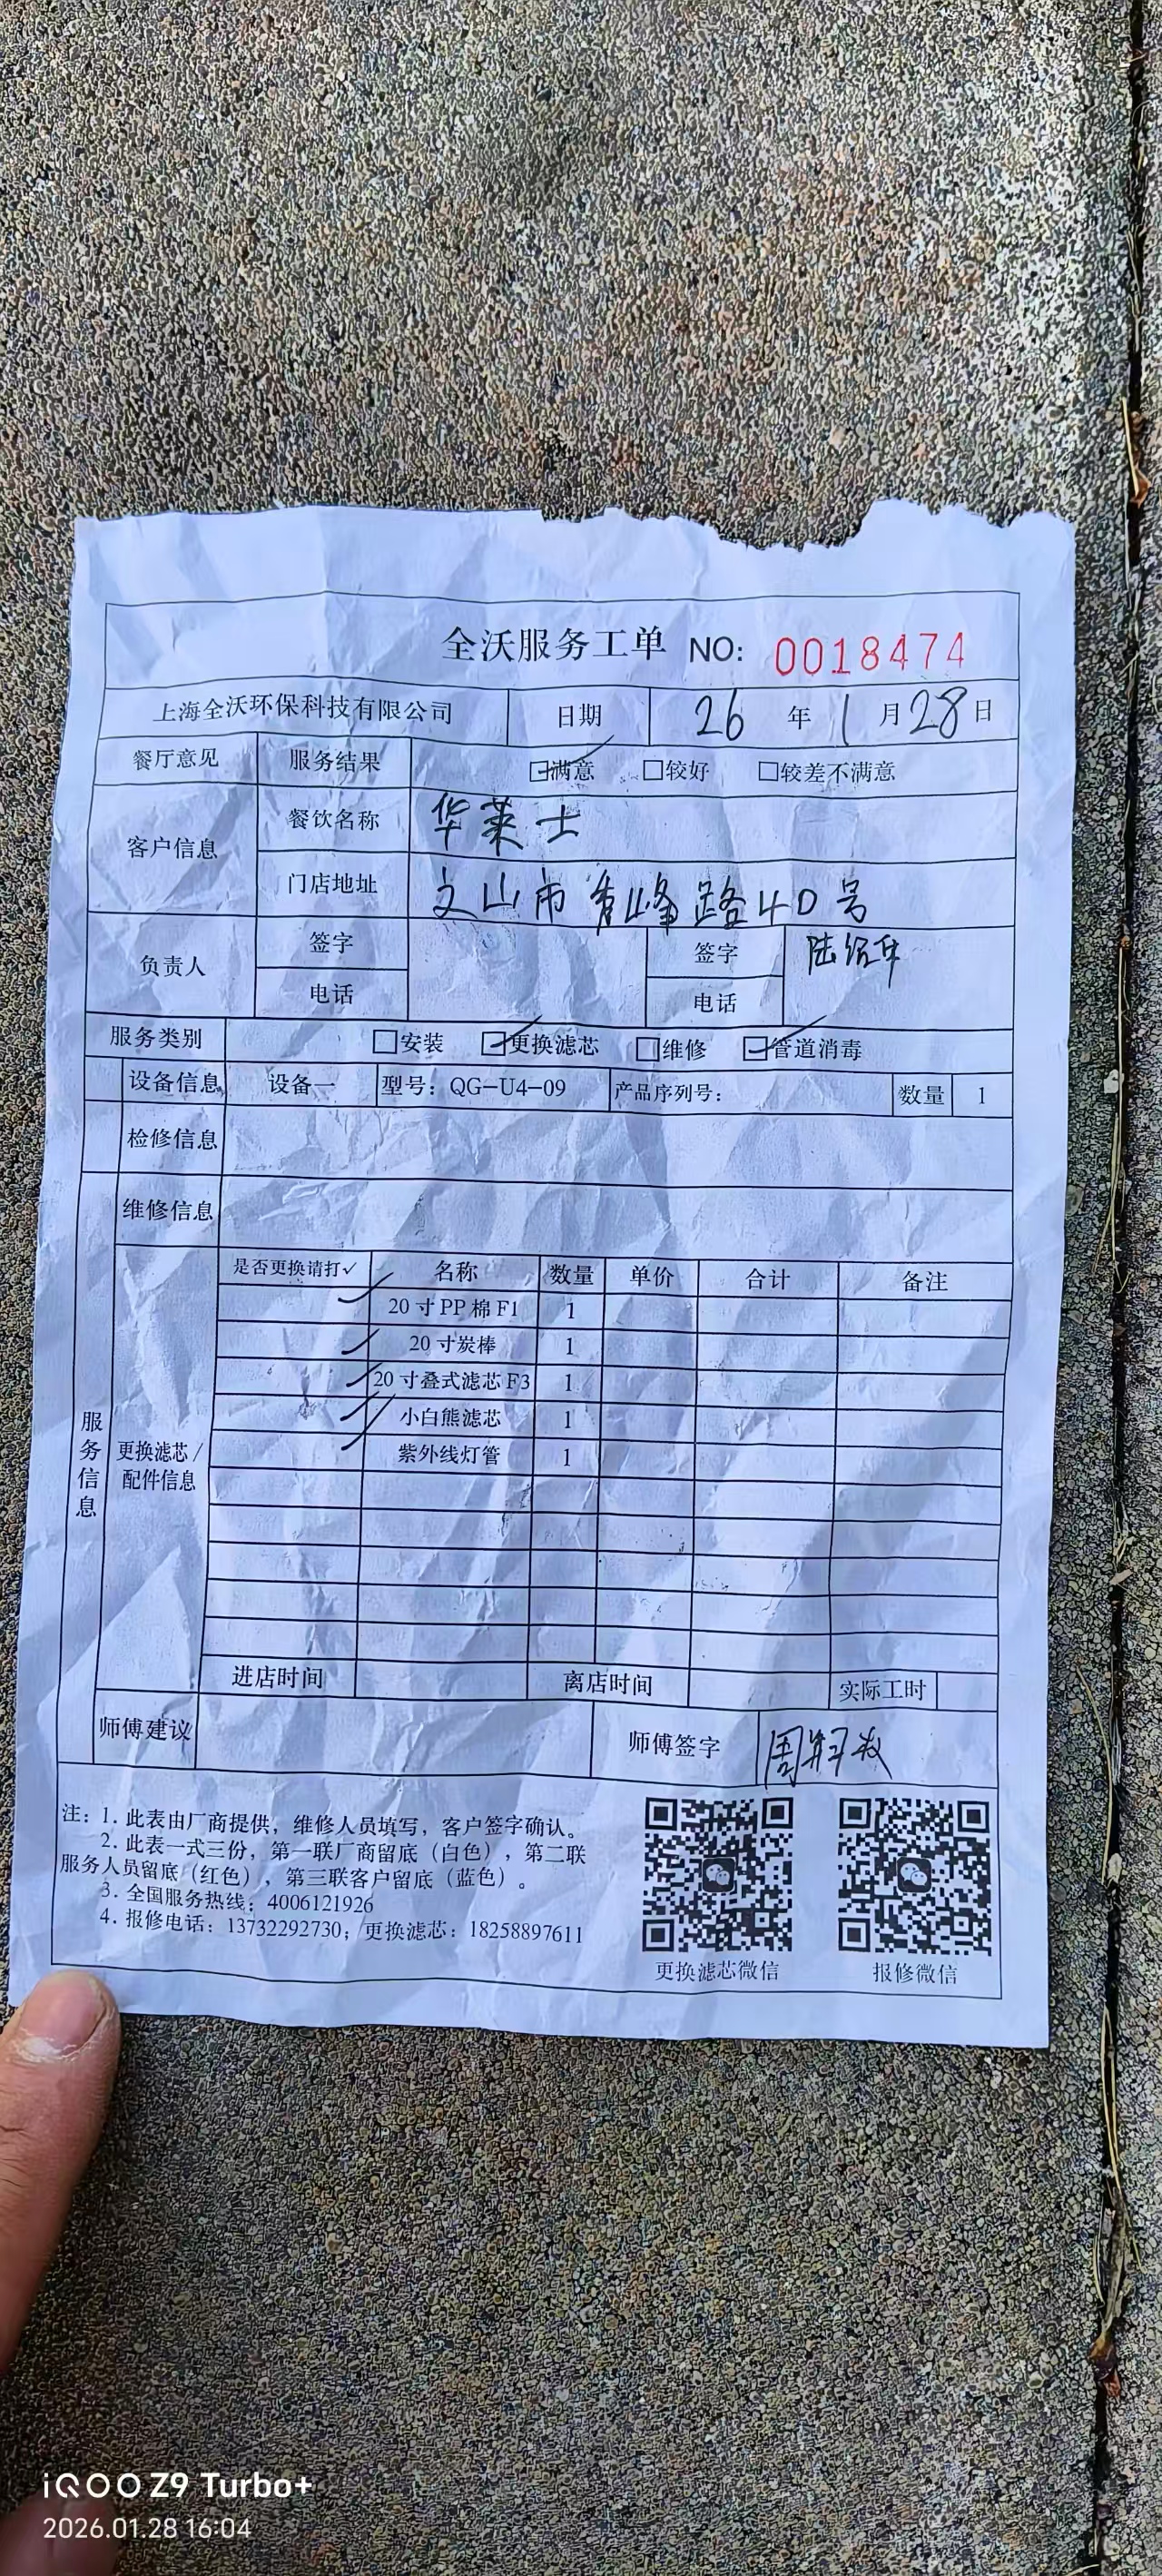 全沃服务工单 NO: 0018474
上海全沃环保科技有限公司 日期 26 年 1 月 28 日
餐厅意见 服务结果 ☑满意 □较好 □较差不满意
客户信息 餐饮名称 华莱士
门店地址 文山市秀峰路40号
负责人 签字 签字 陆
电话 电话
服务类别 □安装 ☑更换滤芯 □维修 ☑管道消毒
设备信息 设备一 型号：QG-U4-09 产品序列号： 数量 1
检修信息
维修信息
服务信息
更换滤芯/配件信息
是否更换请打✓ 名称 数量 单价 合计 备注
✓ 20寸PP棉F1 1
✓ 20寸炭棒 1
✓ 20寸叠式滤芯F3 1
✓ 小白熊滤芯 1
✓ 紫外线灯管 1
进店时间 离店时间 实际工时
师傅建议 师傅签字 周
注：1. 此表由厂商提供，维修人员填写，客户签字确认。
2. 此表一式三份，第一联厂商留底（白色），第二联
服务人员留底（红色），第三联客户留底（蓝色）。
3. 全国服务热线：4006121926
4. 报修电话：13732292730；更换滤芯：18258897611
更换滤芯微信 报修微信
iQOO Z9 Turbo+
2026.01.28 16:04